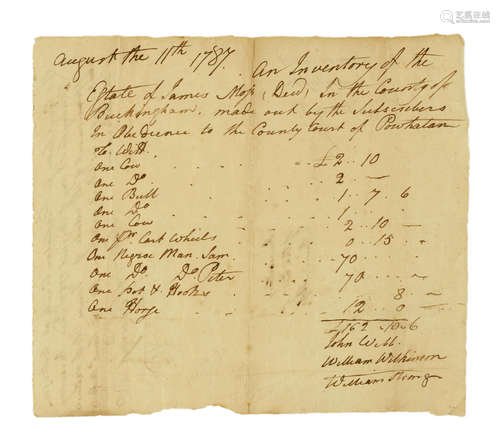 August the 11th 1787. An Inventory of the
Estate of James Moss (Decd) In the County of
Buckingham, made out by the Subscribers
In Obedience to the County Court of Powhatan
To Witt.
One Cow £2 .. 10
One Do. 2 .. —
One Bull 1 .. 7 .. 6
One Do 1 ..
One Cow 2 .. 10 —
One pr. Cart Wheels 0 .. 15 —
One Negroe Man Sam 70
One Do. Do Peter 70
One pot & Hooks 8 —
One Horse 12 .. 0 —
£162 .. 10 .. 6
John Webb.
William Wilkinson
William Strong